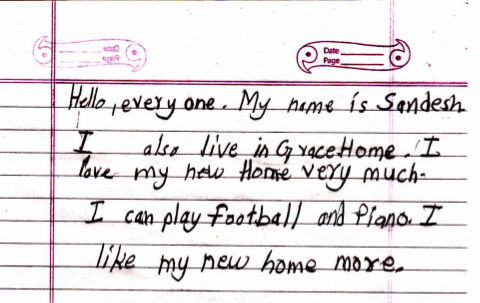 Date
Page
Hello, every one. My name is Sandesh
I also live in GraceHome. I
love my new Home very much.
I can play Football and Piano. I
like my new home more.